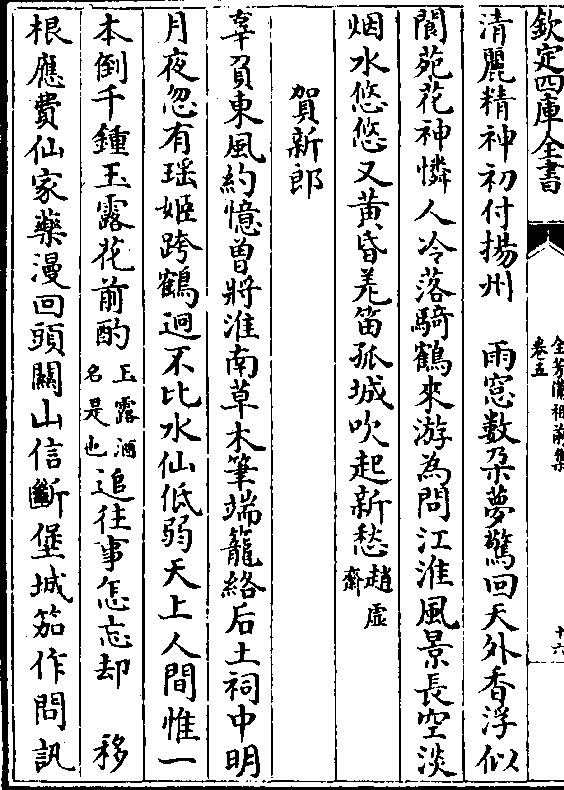 欽定四庫全書
全芳備祖前集
卷五
十六
清麗精神初付揚州　雨窓數朶夢驚回天外香浮似
閬苑花神憐人冷落騎鶴來游為問江淮風景長空淡
烟水悠悠又黃昏羌笛孤城吹起新愁趙虛齋
賀新郎
辜負東風約憶曽將淮南草木筆端籠絡后土祠中明
月夜忽有瑶姬跨鶴迥不比水仙低弱天上人間惟一
本倒千鍾玉露花前酌玉露酒名是也追往事怎忘却　移
根應費仙家藥漫回頭關山信斷堡城笳作問訊